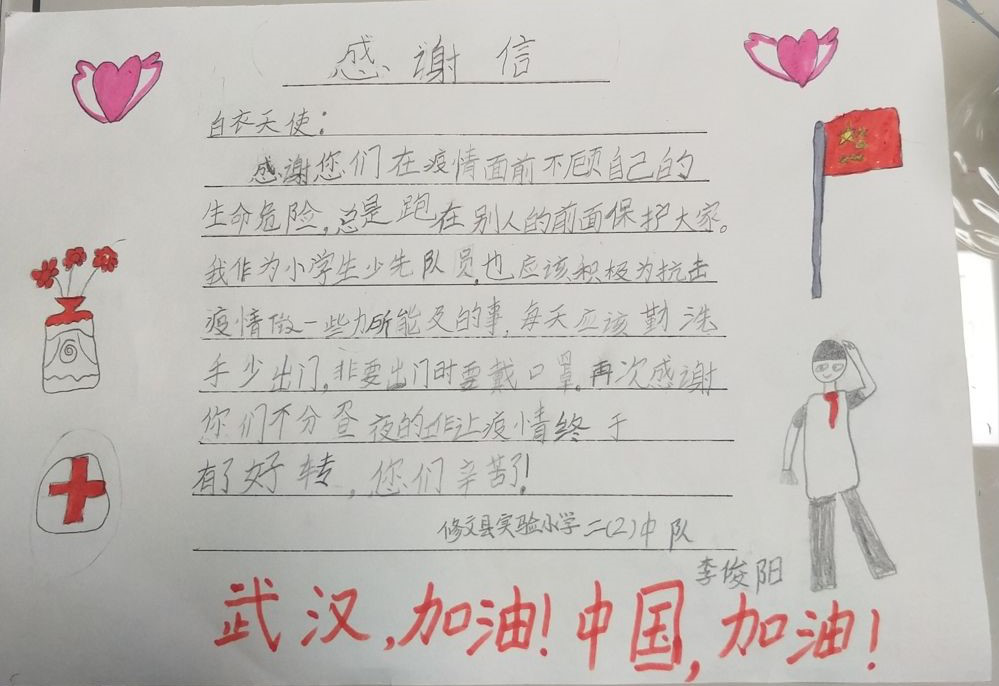 感谢信
白衣天使:
感谢您们在疫情面前不顾自己的
生命危险,总是跑在别人的前面保护大家。
我作为小学生少先队员,也应该积极为抗击
疫情做一些力所能及的事,每天应该勤洗
手少出门,非要出门时要戴口罩。再次感谢
你们不分昼夜的工作让疫情终于
有了好转,您们辛苦了!
修文县实验小学二(2)中队
李俊阳
武汉,加油!中国,加油!